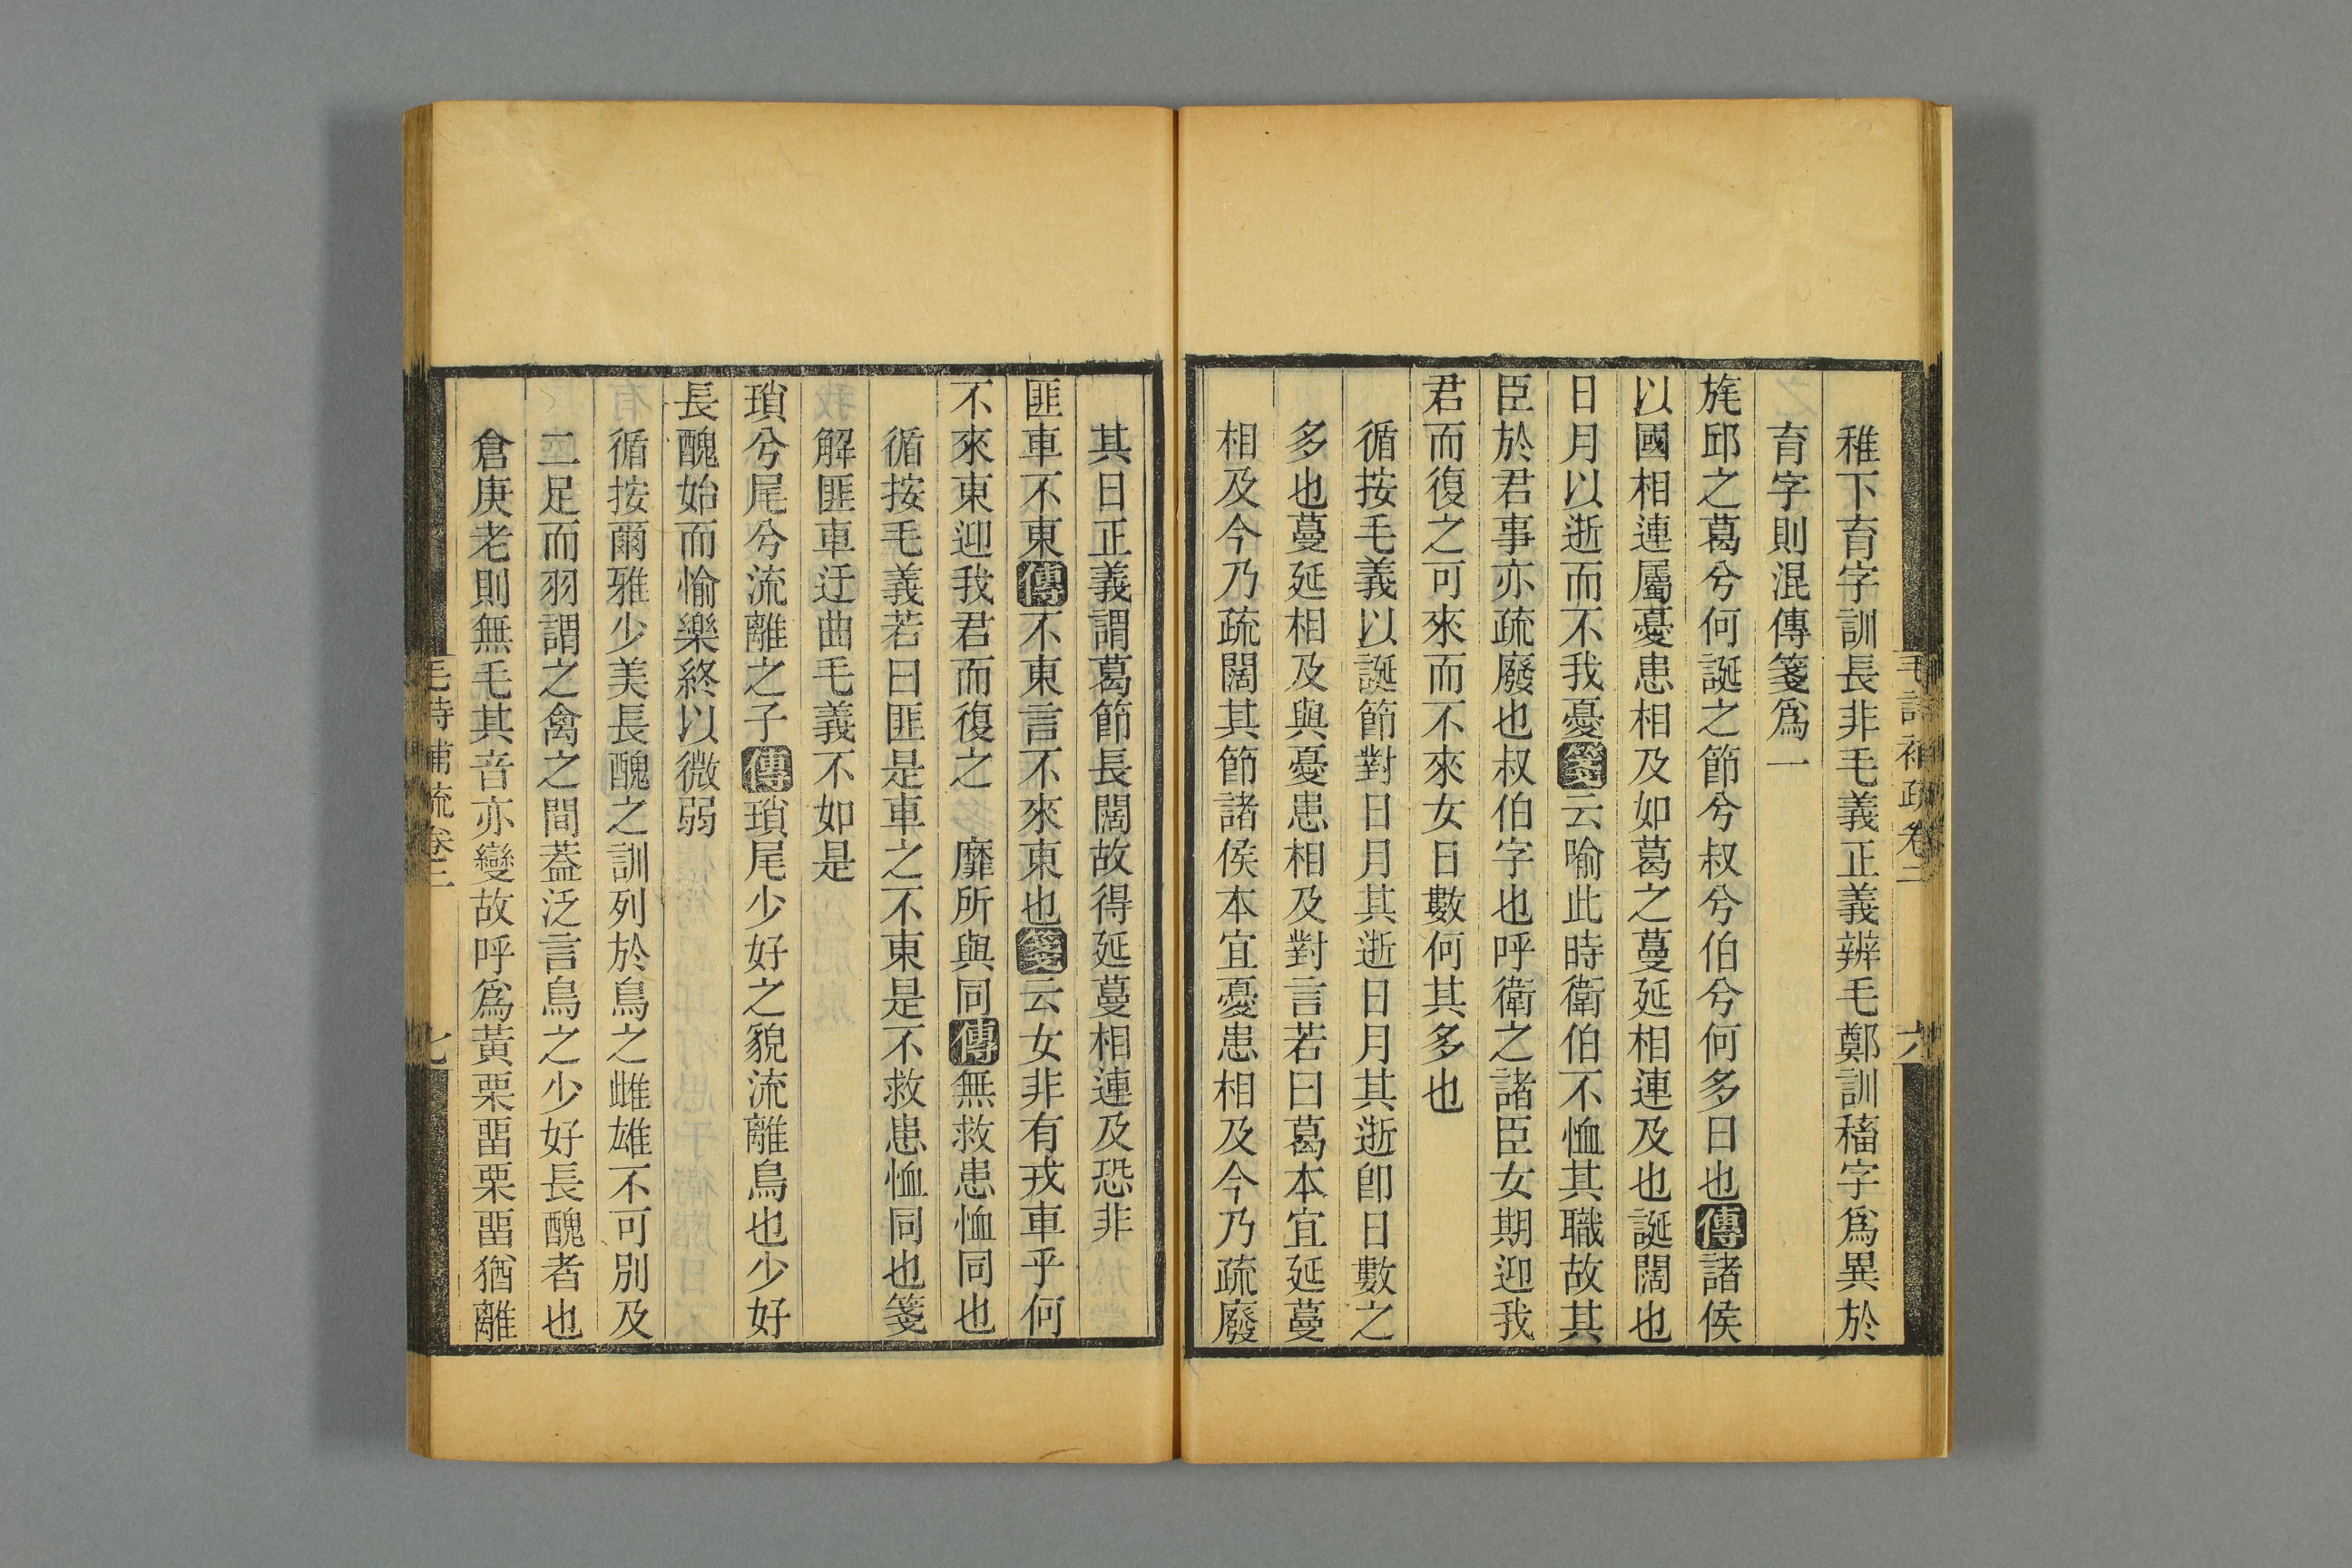 毛詩補疏卷二 六
稚下育字訓長非毛義正義辨毛鄭訓稚字爲異於
育字則混傳箋爲一
旄邱之葛兮何誕之節兮叔兮伯兮何多日也傳諸侯
以國相連屬憂患相及如葛之蔓延相連及也誕闊也
日月以逝而不我憂箋云喻此時衛伯不恤其職故其
臣於君事亦疏廢也叔伯字也呼衛之諸臣女期迎我
君而復之可來而不來女日數何其多也
循按毛義以誕節對日月其逝日月其逝卽日數之
多也蔓延相及與憂患相及對言若曰葛本宜延蔓
相及今乃疏闊其節諸侯本宜憂患相及今乃疏廢
其日正義謂葛節長闊故得延蔓相連及恐非
匪車不東傳不東言不來東也箋云女非有戎車乎何
不來東迎我君而復之 靡所與同傳無救患恤同也
循按毛義若曰匪是車之不東是不救患恤同也箋
解匪車迂曲毛義不如是
瑣兮尾兮流離之子傳瑣尾少好之貌流離鳥也少好
長醜始而愉樂終以微弱
循按爾雅少美長醜之訓列於鳥之雌雄不可別及
二足而羽謂之禽之間葢泛言鳥之少好長醜者也
倉庚老則無毛其音亦變故呼爲黃栗畱栗畱猶離
毛詩補疏卷二 七